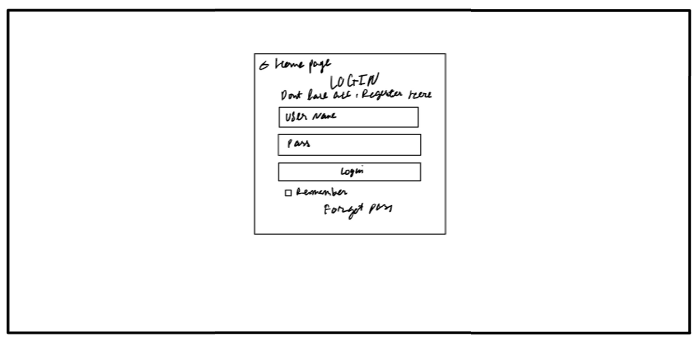 ← Home page
LOGIN
Dont have acc, Register Here
User Name
Pass
Login
Remember
Forgot pass